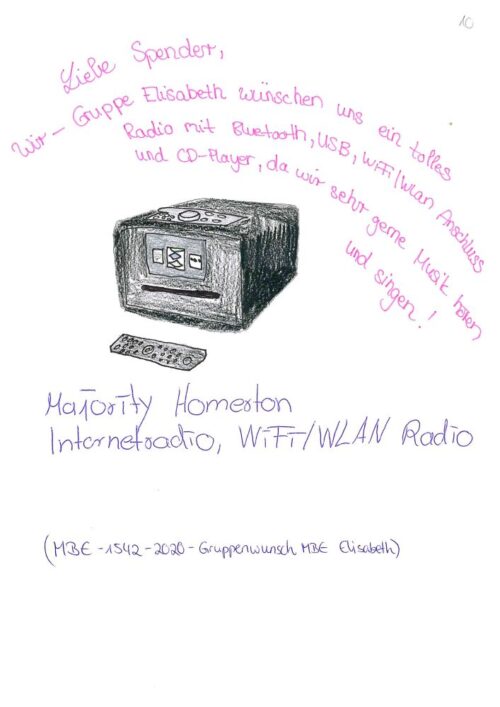 10
Liebe Spender,
Wir - Gruppe Elisabeth wünschen uns ein tolles
Radio mit Bluetooth, USB, WiFi/Wlan Anschluss
und CD-Player, da wir sehr gerne Musik hören
und singen!
Majority Homerton
Internetradio, WiFi/WLAN Radio
(MBE-1542-2020-Gruppenwunsch MBE Elisabeth)